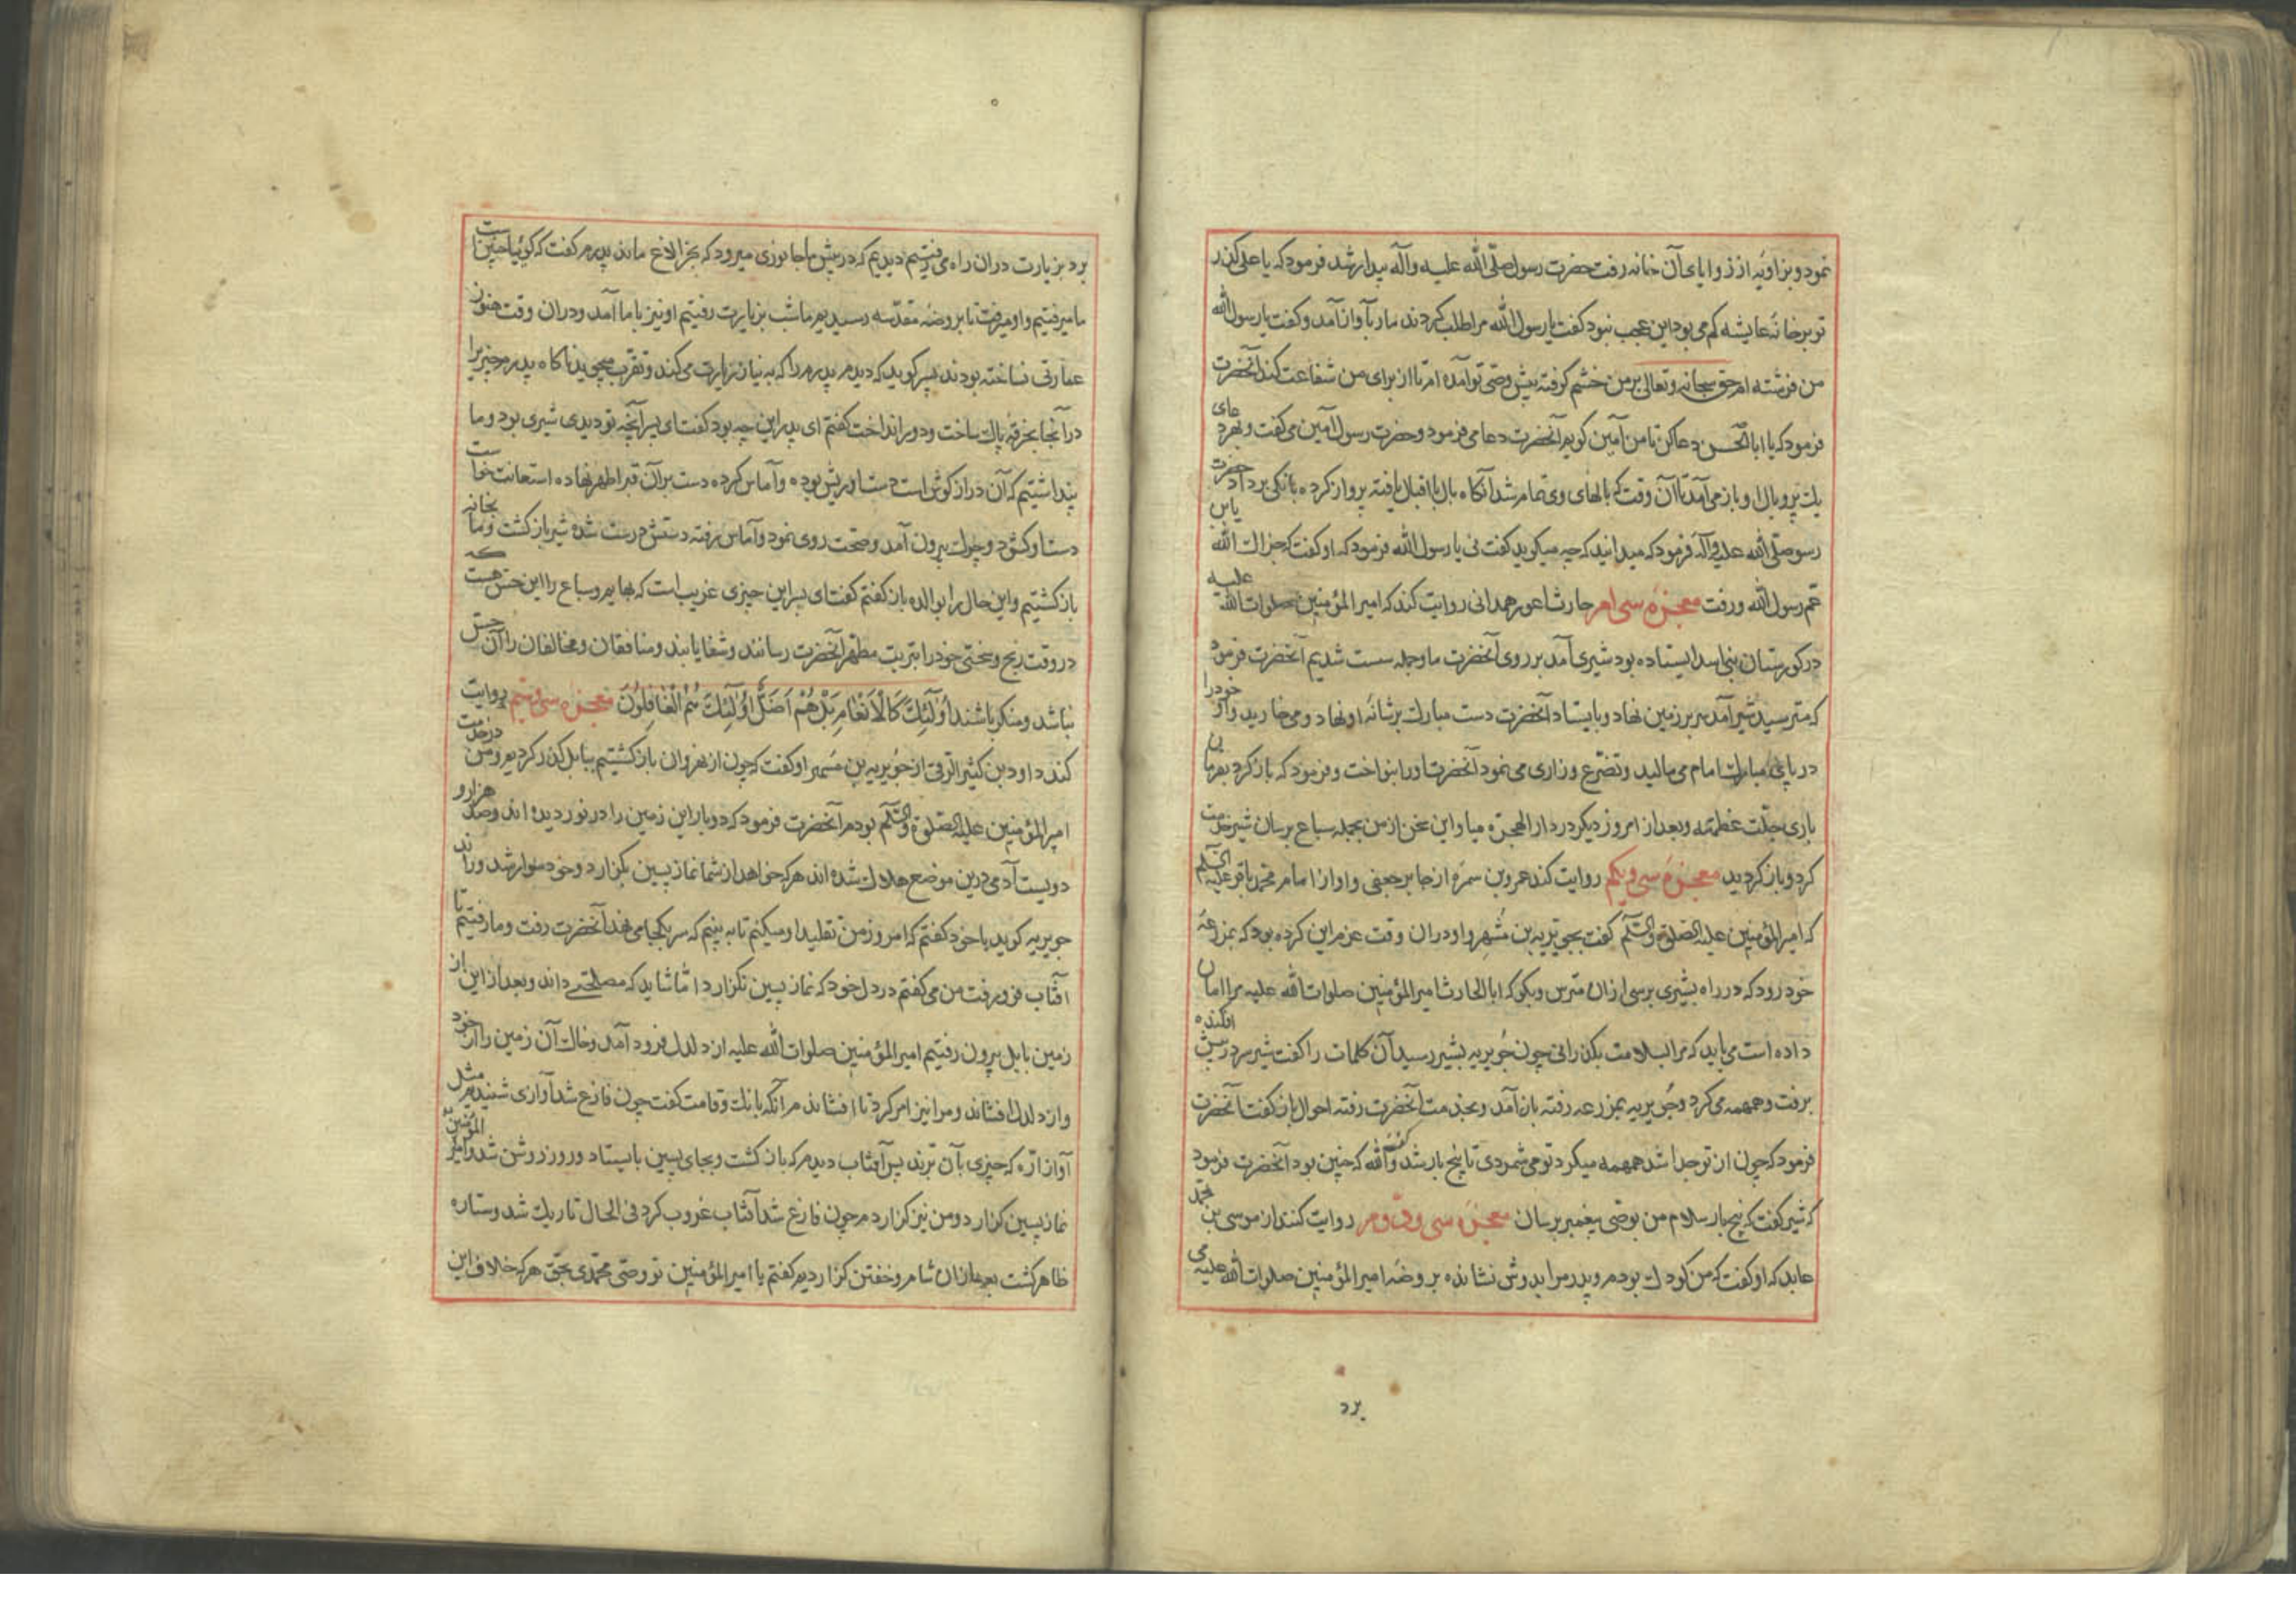 نمود و بزاویه از زوایای آن خانه رفت حضرت رسول صلّی الله علیه وآله بیدار شد فرمود که یا علی کذر
تو برخانهٔ عایشه کم می بود این عجب نبود کفت یا رسول الله مرا طلب کردند مار بآواز آمد و کفت یا رسول الله
من فرشته ام حق سبحانه وتعالی بر من خشم کرفته پیش وصّی تو آمده ام تا از برای من شفاعت کند آنحضرت
فرمود که یا ابا الحسن دعا کن تا من آمین کویم آنحضرت دعا می فرمود و حضرت رسول آمین می کفت و بهر دعای
یك پر وبال او باز می آمد تا آن وقت که بالهای وی تمام شد آنکاه بال با اقبال یافته پرواز کرده بانکی برداد حضرت
رسول صلّی الله علیه وآله فرمود که میدانید که چه میکوید کفت نی یا رسول الله فرمود که او کفت که جزاك الله یا بن
عم رسول الله ورفت معجزهٔ سی ام حارث اعور همدانی روایت کند که امیر المؤمنین صلوات الله علیه
در کورستان بنی اسد ایستاده بود شیری آمد بر روی آنحضرت ما وجمله سست شدیم آنحضرت فرمود
که مترسید شیر آمد سر بر زمین نهاد و بایستاد آنحضرت دست مبارك بر شانهٔ او نهاد و می خارید واو خود را
در پای مبارك امام می مالید وتضرّع وزاری می نمود آنحضرت او را بنواخت و فرمود که باز کرد بفرمان
باری جلّت عظمته وبعد از امروز دیکر در دار الهجره میا واین سخن از من بجمله سباع برسان شیر خدمت
کرد و باز کردید معجزهٔ سی ویکم روایت کند عمرو بن سمره از جابر جعفی واو از امام محمّد باقر علیه السّلم
که امیر المؤمنین علیه الصّلوة والسّلم کفت بجویریه بن مُسْهِر واو در ان وقت عزم این کرده بود که بمزرعهٔ
خود رود که در راه بشیری برسی ازان مترس وبکو که ابا الحارث امیر المؤمنین صلوات الله علیه مرا امان
داده است می باید که مرا بسلامت بکذرانی چون جُویریه بشیر رسید آن کلمات را کفت شیر سر در پیش افکنده
برفت وهمهمه می کرد وجُویریه بمزرعه رفته باز آمد وبخدمت آنحضرت رفته احوال باز کفت آنحضرت
فرمود که چون از تو جدا شد همهمه میکرد تو می شمردی تا پنج بار شد کفت والله که چنین بود آنحضرت فرمود
که شیر کفت که پنج بار سلام من بوصّی پیغمبر برسان معجزهٔ سی ودوم روایت کنند از موسی بن محمّد
عابد که او کفت که من کودك بودم وپدر مرا بدوش نشانده بروضهٔ امیر المؤمنین صلوات الله علیه می
برد
برد بزیارت در ان راه می رفتیم دیدیم که در پیش ما جانوری میرود که بخر الاغ ماند پدرم کفت که کوئیا چنین است
ما میرفتیم واو میرفت تا بروضهٔ مقدّسه رسیدیم ما شب بزیارت رفتیم او نیز با ما آمد ودران وقت هنوز
عمارتی نساخته بودند پسر کوید که دیدم پدرم را که به نیاز زیارت می کند وتقرب میجوید ناکاه پدرم چیزیرا
در آنجا بخرقه پاك ساخت ودور انداخت کفتم ای پدر این چه بود کفت ای پسر آنچه تو دیدی شیری بود وما
پنداشتیم که آن دراز کوش است دست او ریش بوده وآماس کرده دست بر آن قبر اطهر نهاده استعانت خواست
دست او کشود وچرك بیرون آمد وصحّت روی نمود وآماس رفته دستش درست شده شیر باز کشت وما بخانه
باز کشتیم واین حال را بوالده باز کفتم کفت ای پسر این چیزی غریب است که بهایم وسباع را این حس هست که
در وقت رنج وسختی خود را بتربت مطهر آنحضرت رسانند وشفا یابند ومنافقان ومخالفان را آن حس
نباشد ومنکر باشند اُولَٓئِكَ كَالْاَنْعَامِ بَلْ هُمْ اَضَلُّ اُولَٓئِكَ هُمُ الْغَافِلُونَ معجزه سی وسیم روایت
کند داود بن کثیر الرّقی از جُویریه بن مُسْهر او کفت که چون از نهروان باز کشتیم ببابل کذر کردیم ومن در خدمت
امیر المؤمنین علیه الصّلوة والسّلم بودم آنحضرت فرمود که دوبار این زمین را در نوردیده اند وصد هزار و
دویست آدمی درین موضع هلاك شده اند هر که خواهد از شما نماز پسین بکزارد وخود سوار شد وراند
جویریه کوید با خود کفتم که امروز من تقلید او میکنم تا به بینم که سر بکجا می نهد آنحضرت رفت وما رفتیم تا
افتاب فرو رفت من می کفتم در دل خود که نماز پسین نکزارد امّا شاید که مصلحتی داند وبعد از این از
زمین بابل بیرون رفتیم امیر المؤمنین صلوات الله علیه از دلدل فرود آمد وخاك آن زمین را از خود
واز دلدل افشاند ومرا نیز امر کرد تا افشاندم آنکه بانك وقامت کفت چون فارغ شد آوازی شنیدم مثل
آواز ارّه که چیزی بآن برند پس آفتاب دیدم که باز کشت وبجای پسین بایستاد وروز روشن شد امیر المؤمنین
نماز پسین کزارد ومن نیز کزاردم چون فارغ شد آفتاب غروب کرد فی الحال تاریك شد وستاره
ظاهر کشت بعد ازان شام وخفتن کزاردیم کفتم یا امیر المؤمنین تو وصّی محمّدی بحق هر که خلاف این